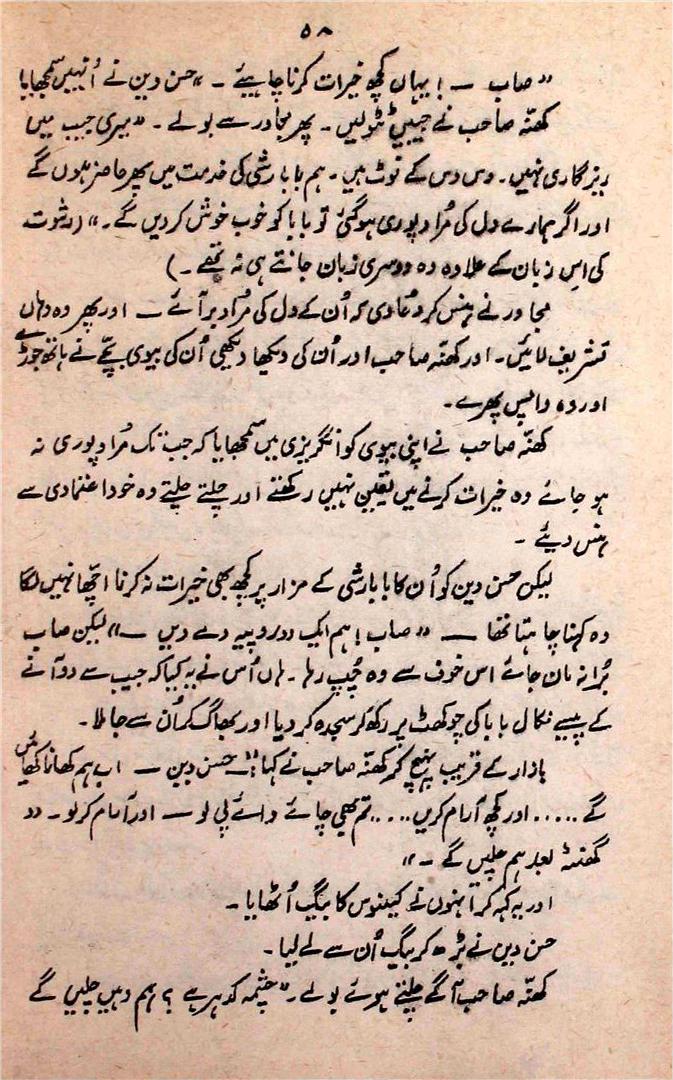 ۵۸
”صاب — ! یہاں کچھ خیرات کرنا چاہیئے ۔ “ حسن دین نے اُنہیں سمجھایا
کھنّہ صاحب نے جیبیں ٹٹولیں ۔ پھر مجاور سے بولے ۔ ”میری جیب میں
ریزگاری نہیں ۔ دس دس کے نوٹ ہیں ۔ ہم بابا رشی کی خدمت میں پھر حاضر ہوں گے
اور اگر ہمارے دل کی مُراد پوری ہو گئی تو بابا کو خوب خوش کر دیں گے ۔ “ (رشوت
کی اس زبان کے علاوہ وہ دوسری زبان جانتے ہی نہ تھے ۔ )
مجاور نے ہنس کر دُعا دی کہ اُن کے دل کی مُراد بر آئے — اور پھر وہ وہاں
تشریف لائیں ۔ اور کھنّہ صاحب اور اُن کی دیکھا دیکھی اُن کی بیوی بچّے نے ہاتھ جوڑے
اور وہ واپس پھرے ۔
کھنّہ صاحب نے اپنی بیوی کو انگریزی میں سمجھایا کہ جب تک مُراد پوری نہ
ہو جائے وہ خیرات کرنے میں یقین نہیں رکھتے اور چلتے چلتے وہ خود اعتمادی سے
ہنس دیئے ۔
لیکن حسن دین کو اُن کا بابا رشی کے مزار پر کچھ بھی خیرات نہ کرنا اچھّا نہیں لگا
وہ کہنا چاہتا تھا — ”صاب ! ہم ایک دو روپیہ دے دیں — “ لیکن صاب
بُرا نہ مان جائے اس خوف سے وہ چُپ رہا ۔ ہاں اُس نے یہ کیا کہ جیب سے دو آنے
کے پیسے نکال بابا کی چوکھٹ پر رکھ کر سجدہ کر دیا اور بھاگ کر اُن سے جا ملا ۔
بازار کے قریب پہنچ کر کھنّہ صاحب نے کہا : ” حسن دین — اب ہم کھانا کھائیں
گے ..... اور کچھ آرام کریں .... تم بھی چائے وائے پی لو — اور آرام کر لو ۔ دو
گھنٹہ بعد ہم چلیں گے ۔ “
اور یہ کہہ کر اُنہوں نے کینوس کا بیگ اُٹھایا ۔
حسن دین نے بڑھ کر بیگ اُن سے لے لیا ۔
کھنّہ صاحب آگے چلتے ہوئے بولے ۔ ”چشمہ کدہر ہے ؟ ہم وہیں چلیں گے